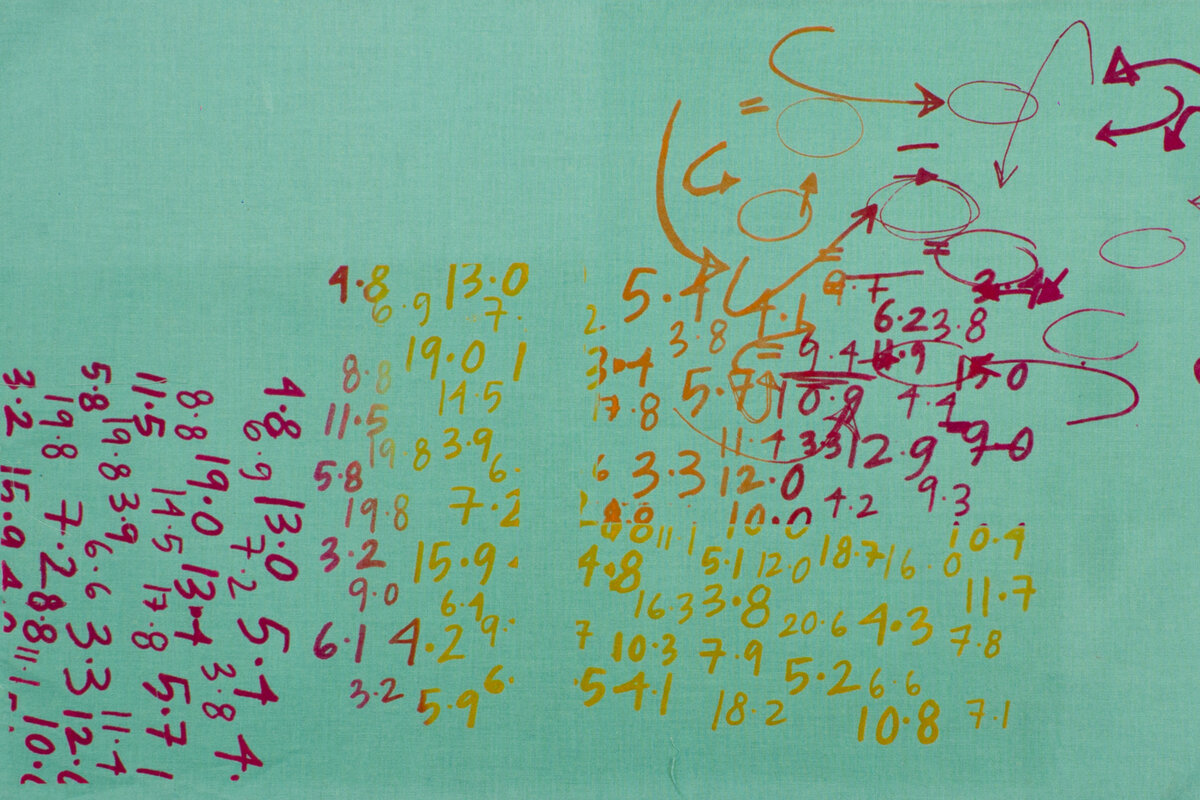 4.8 13.0
6.9 7.
19.0 1
8.8 14.5
11.5
19.8 3.9
5.8 6.
19.8 7.2
3.2 15.9.
9.0 6.4
6.1 4.2 9.
3.2 5.9 6.
5.4 4.1 9.7 3.4
3.8 6.2 3.8
3.4 9.4 11.9 15.0
17.8 5.7 10.9 4.4
11.4 3.3 12.9 9.0
6 3.3 12.0 4.2 9.3
10.0
11.1 10.4
4.8 5.1 12.0 18.7 16.0
16.3 3.8 11.7
20.6 4.3
7 10.3 7.9 7.8
.5 4.1 5.2 6.6
18.2 10.8 7.1
4.8 13.0 5.4 4.
6.9 7.2 3.8
8.8 19.0 13.4 5.7 1
11.5 14.5 17.8 11.4
19.8 3.9 6.6 3.3 12.
5.8 19.8 7.2 8.8 11.1 10.
3.2 15.9